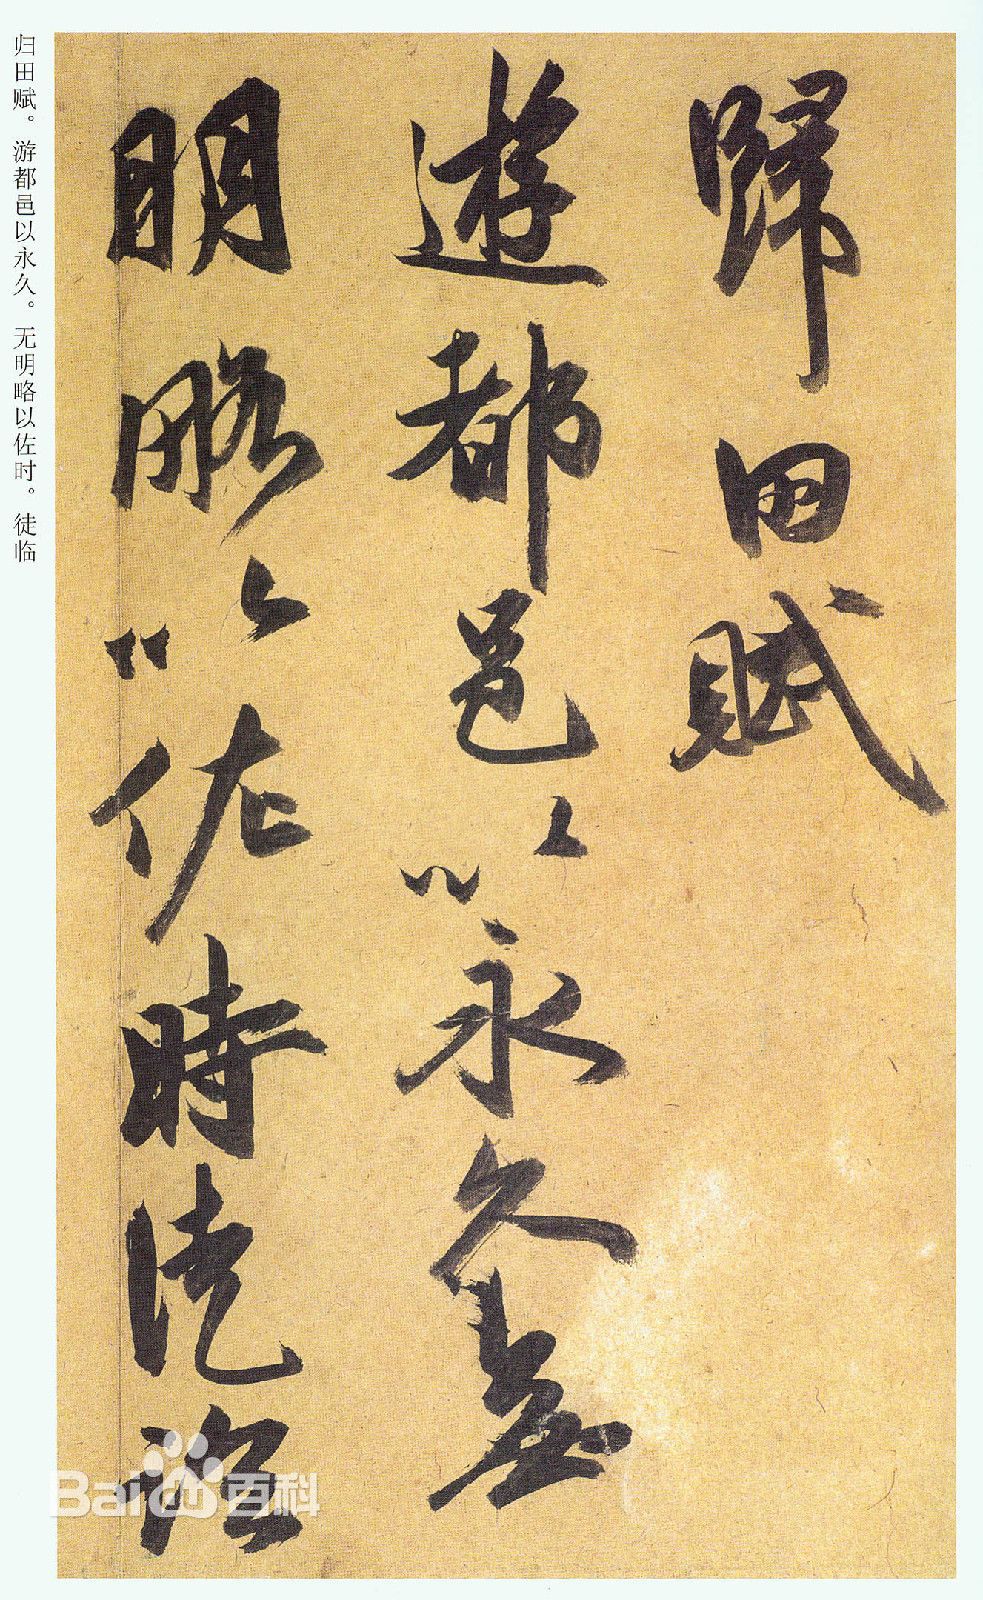 歸田賦
遊都邑以永久無
明略以佐時徒臨
归田赋。游都邑以永久。无明略以佐时。徒临
Bai百科